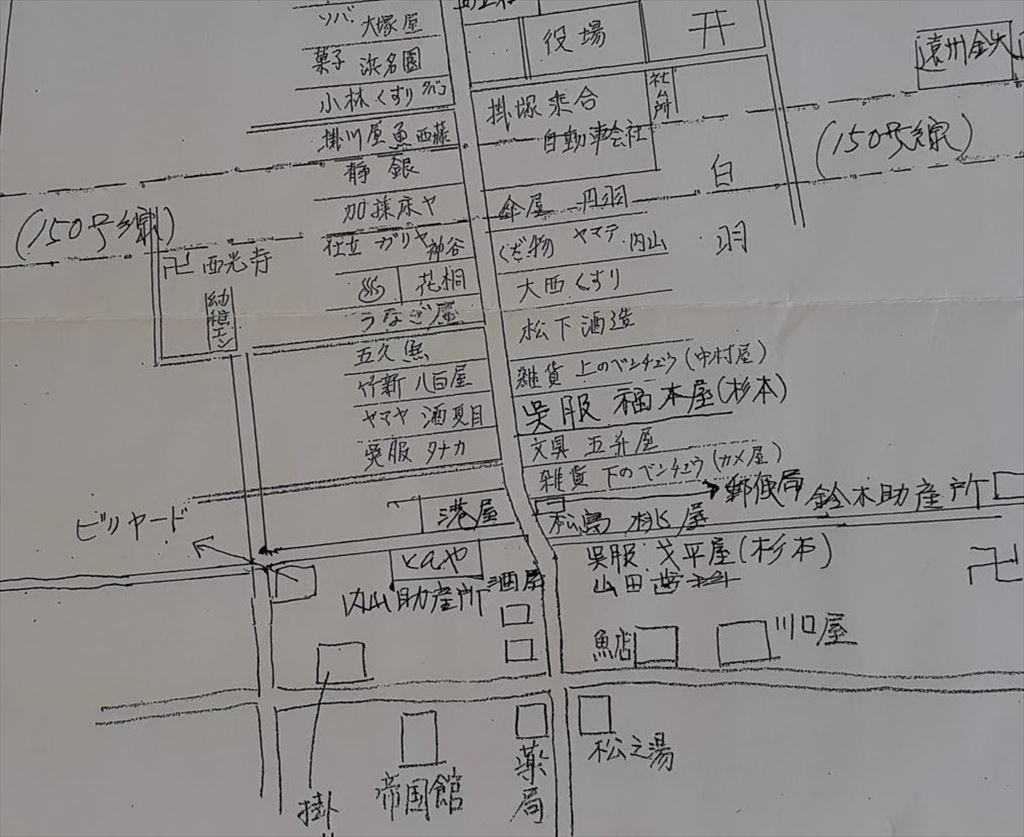 ソバ 大塚屋
菓子 浜名園
小林くすり
掛川屋魚 西藤
静銀
加藤床ヤ
仕立 ガリヤ 神谷
花桐
うなぎ屋
五久魚
竹新 八百屋
ヤマヤ 酒 夏目
呉服 タナカ
港屋
役場
掛塚乗合
自動車会社
社台所
傘屋 丹羽
くだ物 ヤマテ 内山
大西くすり
松下酒造
雑貨 上のベンチュウ(中村屋)
呉服 福本屋(杉本)
文具 五弁屋
雑貨 下のベンチュウ(カメ屋)
郵便局
鈴木助産所
松島 桃屋
呉服 戈平屋(杉本)
山田歯
遠州鉄
(150号線)
白羽
(150号線)
卍 西光寺
幼稚エン
ビリヤード
内山助産所
酒屋
卍
魚店
川口屋
松之湯
薬局
帝国館
掛